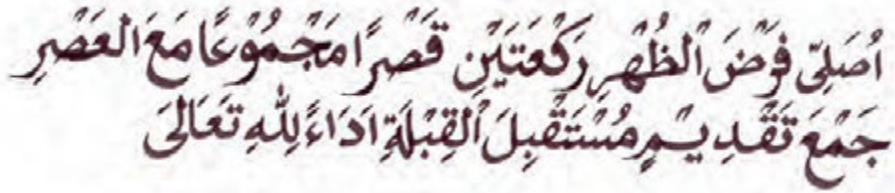 اُصَلِّىْ فَرْضَ الْظُهْرِ رَكْعَتَيْنِ قَصْرًا مَجْمُوْعًا مَعَ الْعَصْرِ
جَمْعَ تَقْدِيْمٍ مُسْتَقْبِلَ الْقِبْلَةِ اَدَاءً لِلّٰهِ تَعَالَىَ